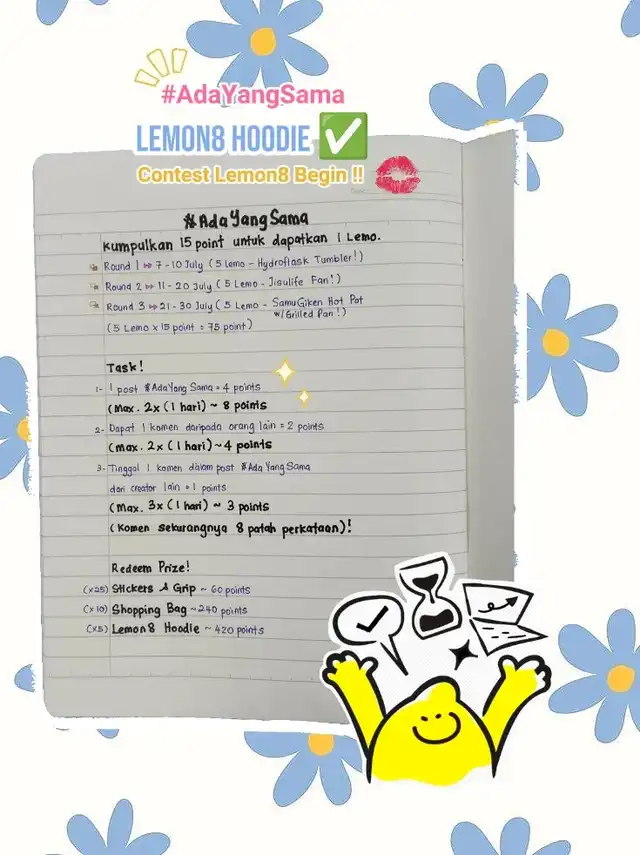 #AdaYangSama
LEMON8 HOODIE ✅
Contest Lemon8 Begin !!
#AdaYangSama
Kumpulkan 15 point untuk dapatkan 1 Lemo.
Round 1 ➳ 7 - 10 July ( 5 Lemo - Hydroflask Tumbler! )
Round 2 ➳ 11 - 20 July ( 5 Lemo - Jisulife Fan! )
Round 3 ➳ 21 - 30 July ( 5 Lemo - SamuGiken Hot Pot
w/ Grilled Pan! )
( 5 Lemo x 15 point = 75 point )
Task!
1- 1 post #AdaYangSama = 4 points
(Max. 2x ( 1 hari ) ~ 8 points
2- Dapat 1 komen daripada orang lain = 2 points
(max. 2x ( 1 hari ) ~ 4 points
3- Tinggal 1 komen dalam post #AdaYangSama
dari creator lain = 1 points
(Max. 3x ( 1 hari ) ~ 3 points
( Komen sekurangnya 8 patah perkataan )!
Redeem Prize!
(x25) Stickers & Grip ~ 60 points
(x10) Shopping Bag ~ 240 points
(x5) Lemon8 Hoodie ~ 420 points